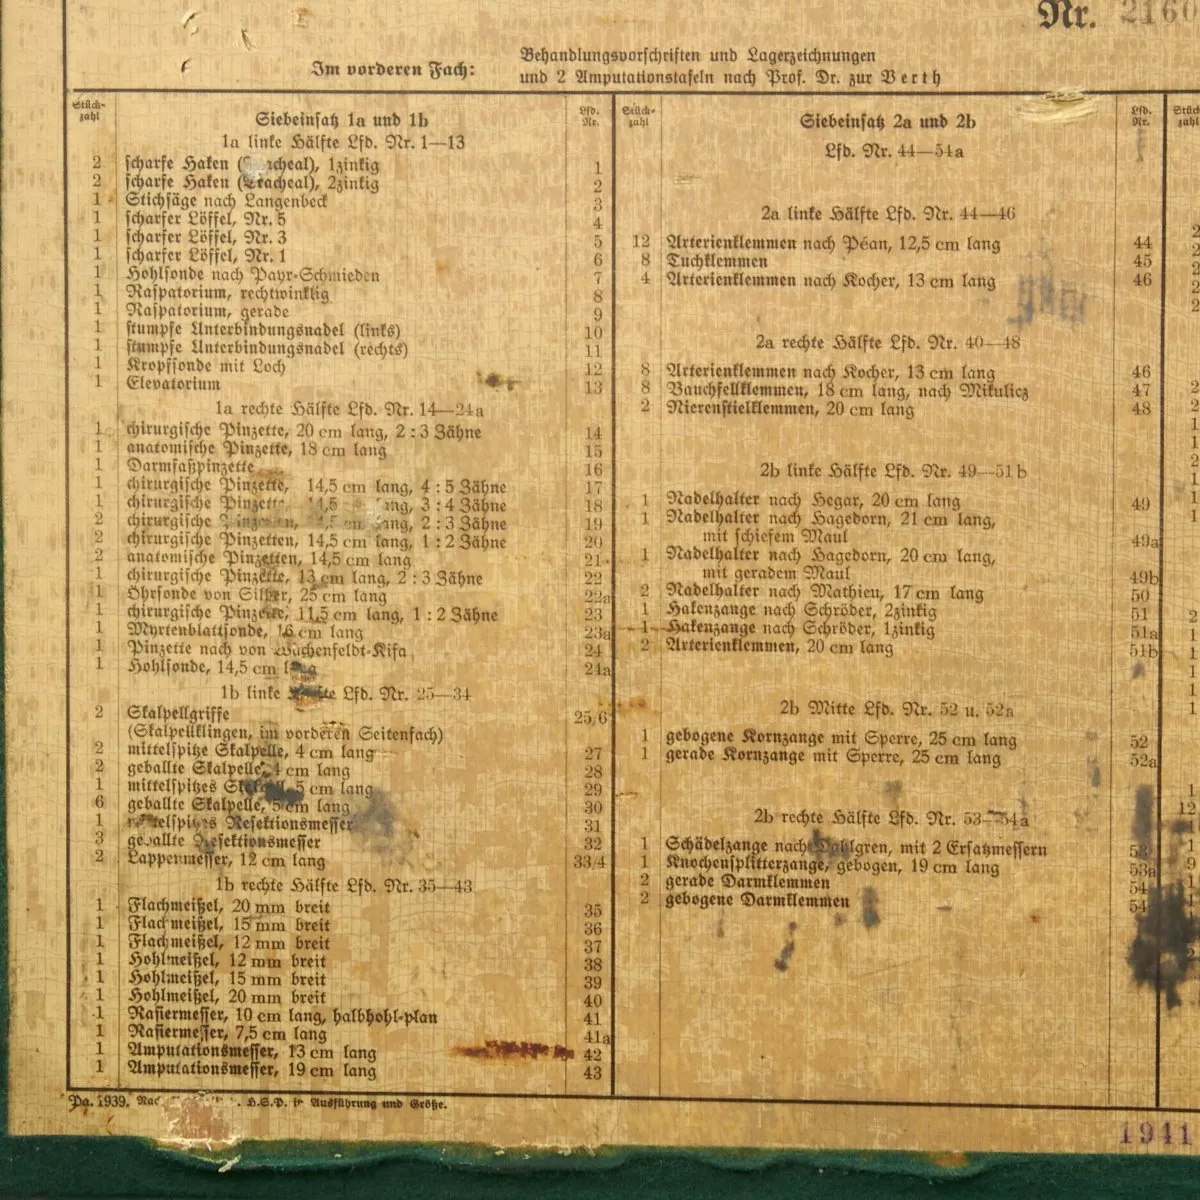 Nr. 2160
Im vorderen Fach:
Behandlungsvorschriften und Lagerzeichnungen
und 2 Amputationstafeln nach Prof. Dr. zur Verth
Stück-
zahl
Siebeinsatz 1a und 1b
Lfd.
Nr.
1a linke Hälfte Lfd. Nr. 1—13
2 scharfe Haken (Tracheal), 1zinkig 1
2 scharfe Haken (Tracheal), 2zinkig 2
1 Stichsäge nach Langenbeck 3
1 scharfer Löffel, Nr. 5 4
1 scharfer Löffel, Nr. 3 5
1 scharfer Löffel, Nr. 1 6
1 Hohlsonde nach Payr-Schmieden 7
1 Raspatorium, rechtwinklig 8
1 Raspatorium, gerade 9
1 stumpfe Unterbindungsnadel (links) 10
1 stumpfe Unterbindungsnadel (rechts) 11
1 Kropfsonde mit Loch 12
1 Elevatorium 13
1a rechte Hälfte Lfd. Nr. 14—24a
1 chirurgische Pinzette, 20 cm lang, 2 : 3 Zähne 14
1 anatomische Pinzette, 18 cm lang 15
1 Darmfaßpinzette 16
1 chirurgische Pinzette, 14,5 cm lang, 4 : 5 Zähne 17
1 chirurgische Pinzette, 14,5 cm lang, 3 : 4 Zähne 18
2 chirurgische Pinzetten, 14,5 cm lang, 2 : 3 Zähne 19
2 chirurgische Pinzetten, 14,5 cm lang, 1 : 2 Zähne 20
2 anatomische Pinzetten, 14,5 cm lang 21
1 chirurgische Pinzette, 13 cm lang, 2 : 3 Zähne 22
1 Öhrsonde von Silber, 25 cm lang 22a
1 chirurgische Pinzette, 11,5 cm lang, 1 : 2 Zähne 23
1 Myrtenblattsonde, 16 cm lang 23a
1 Pinzette nach von Wachenfeldt-Kifa 24
1 Hohlsonde, 14,5 cm lang 24a
1b linke Hälfte Lfd. Nr. 25—34
2 Skalpellgriffe 25/6
(Skalpellklingen, im vorderen Seitenfach)
2 mittelspitze Skalpelle, 4 cm lang 27
2 geballte Skalpelle, 4 cm lang 28
1 mittelspitzes Skalpell, 5 cm lang 29
6 geballte Skalpelle, 5 cm lang 30
1 mittelspitzes Resektionsmesser 31
3 geballte Resektionsmesser 32
2 Lappenmesser, 12 cm lang 33/4
1b rechte Hälfte Lfd. Nr. 35—43
1 Flachmeißel, 20 mm breit 35
1 Flachmeißel, 15 mm breit 36
1 Flachmeißel, 12 mm breit 37
1 Hohlmeißel, 12 mm breit 38
1 Hohlmeißel, 15 mm breit 39
1 Hohlmeißel, 20 mm breit 40
1 Rasiermesser, 10 cm lang, halbhohl-plan 41
1 Rasiermesser, 7,5 cm lang 41a
1 Amputationsmesser, 13 cm lang 42
1 Amputationsmesser, 19 cm lang 43
Stück-
zahl
Siebeinsatz 2a und 2b
Lfd.
Nr.
Lfd. Nr. 44—54a
2a linke Hälfte Lfd. Nr. 44—46
12 Arterienklemmen nach Péan, 12,5 cm lang 44
8 Tuchklemmen 45
4 Arterienklemmen nach Kocher, 13 cm lang 46
2a rechte Hälfte Lfd. Nr. 40—48
8 Arterienklemmen nach Kocher, 13 cm lang 46
8 Bauchfellklemmen, 18 cm lang, nach Mikulicz 47
2 Nierenstielklemmen, 20 cm lang 48
2b linke Hälfte Lfd. Nr. 49—51b
1 Nadelhalter nach Hegar, 20 cm lang 49
1 Nadelhalter nach Hagedorn, 21 cm lang,
mit schiefem Maul 49a
1 Nadelhalter nach Hagedorn, 20 cm lang,
mit geradem Maul 49b
2 Nadelhalter nach Mathieu, 17 cm lang 50
1 Hakenzange nach Schröder, 2zinkig 51
1 Hakenzange nach Schröder, 1zinkig 51a
2 Arterienklemmen, 20 cm lang 51b
2b Mitte Lfd. Nr. 52 u. 52a
1 gebogene Kornzange mit Sperre, 25 cm lang 52
1 gerade Kornzange mit Sperre, 25 cm lang 52a
2b rechte Hälfte Lfd. Nr. 53—54a
1 Schädelzange nach Dahlgren, mit 2 Ersatzmessern 53
1 Knochensplitterzange, gebogen, 19 cm lang 53a
2 gerade Darmklemmen 54
2 gebogene Darmklemmen 54
Stück
Pa. 1939. H.S.P. in Ausführung und Größe.
1941